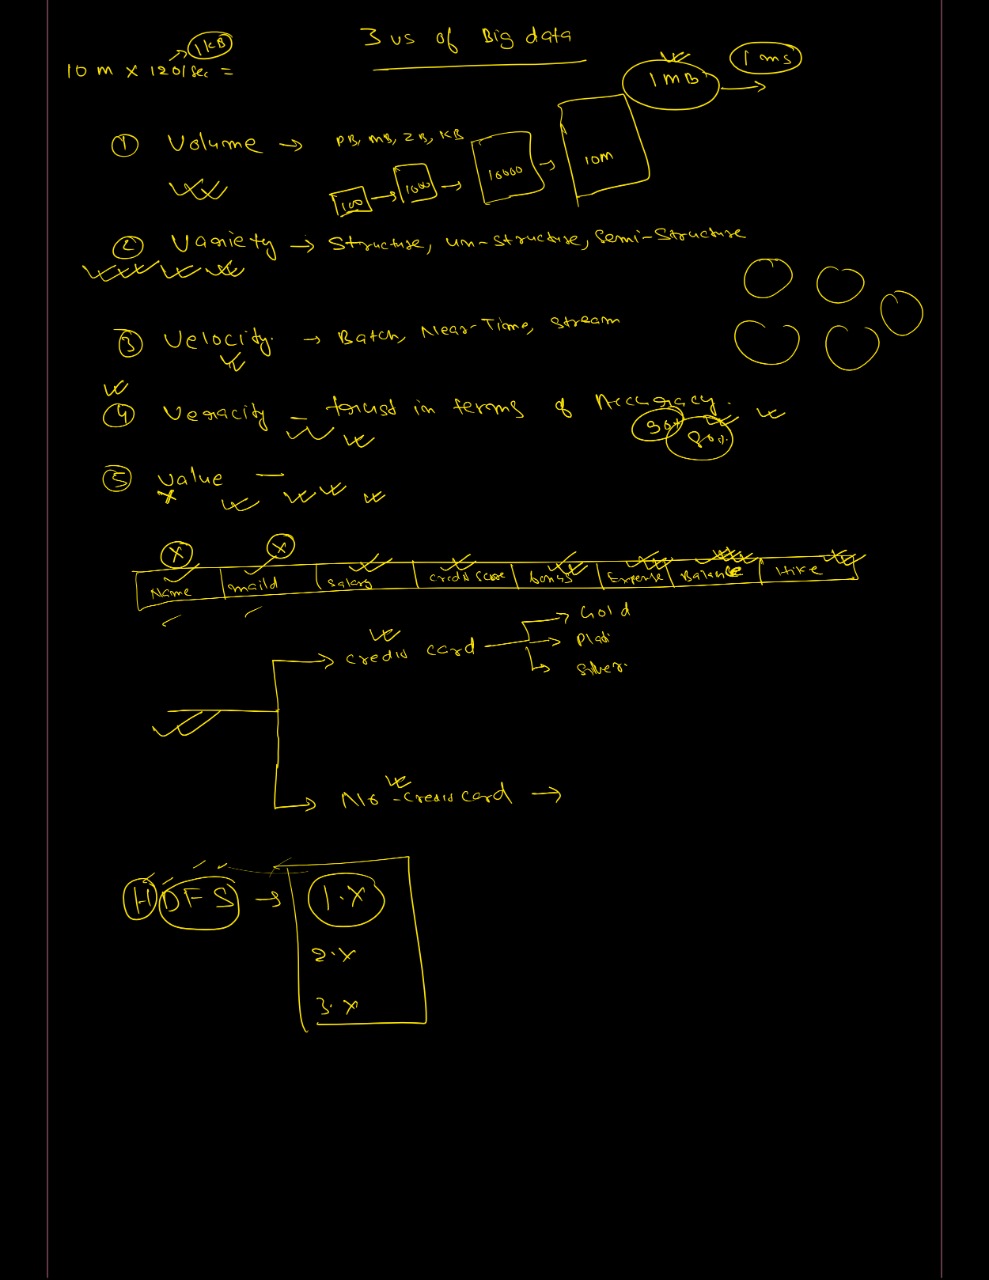 3 vs of Big data
1 KB
10 m x 120/sec =
1 MB
1 ms
① Volume → PB, MB, ZB, KB
100 → 1000 → 10000 → 10m
② Variety → Structure, un-structure, Semi-Structure
③ Velocity. → Batch, Near-Time, Stream
④ Veracity - in terms of Accuracy.
80%.
⑤ value -
X X
Name maild Salary credit score bonus Expense Balance Hike
Gold
credit card
Pladi
Silver.
No-credit card →
HDFS → 1.X
2.X
3.X